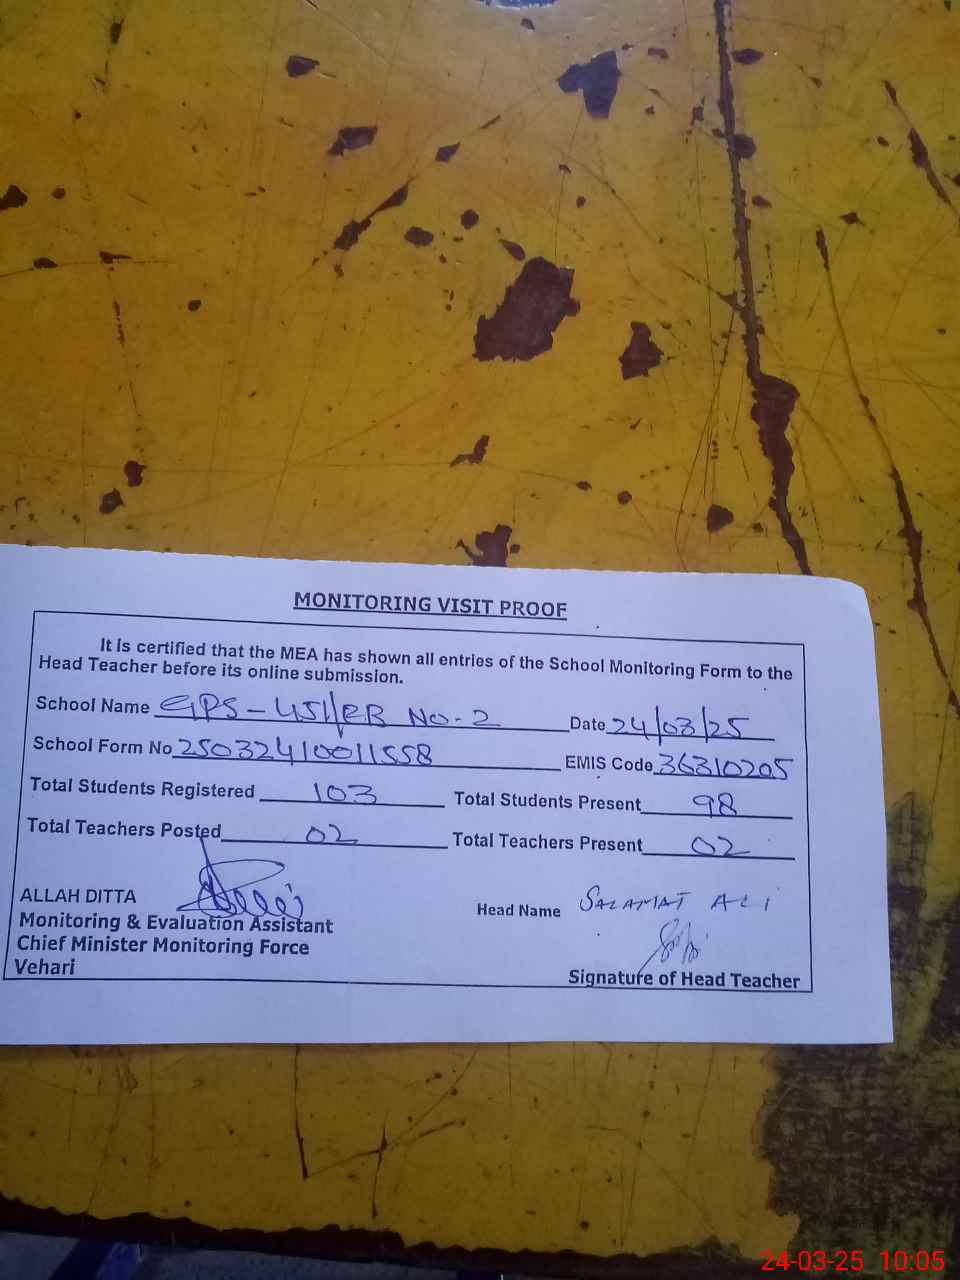 MONITORING VISIT PROOF
It is certified that the MEA has shown all entries of the School Monitoring Form to the
Head Teacher before its online submission.
School Name GPS-451/EB No-2 Date 24/03/25
School Form No 25032410011558 EMIS Code 36310205
Total Students Registered 103 Total Students Present 98
Total Teachers Posted 02 Total Teachers Present 02
ALLAH DITTA
Head Name SALAMAT ALI
Monitoring & Evaluation Assistant
Chief Minister Monitoring Force
Vehari
Signature of Head Teacher
24-03-25 10:05